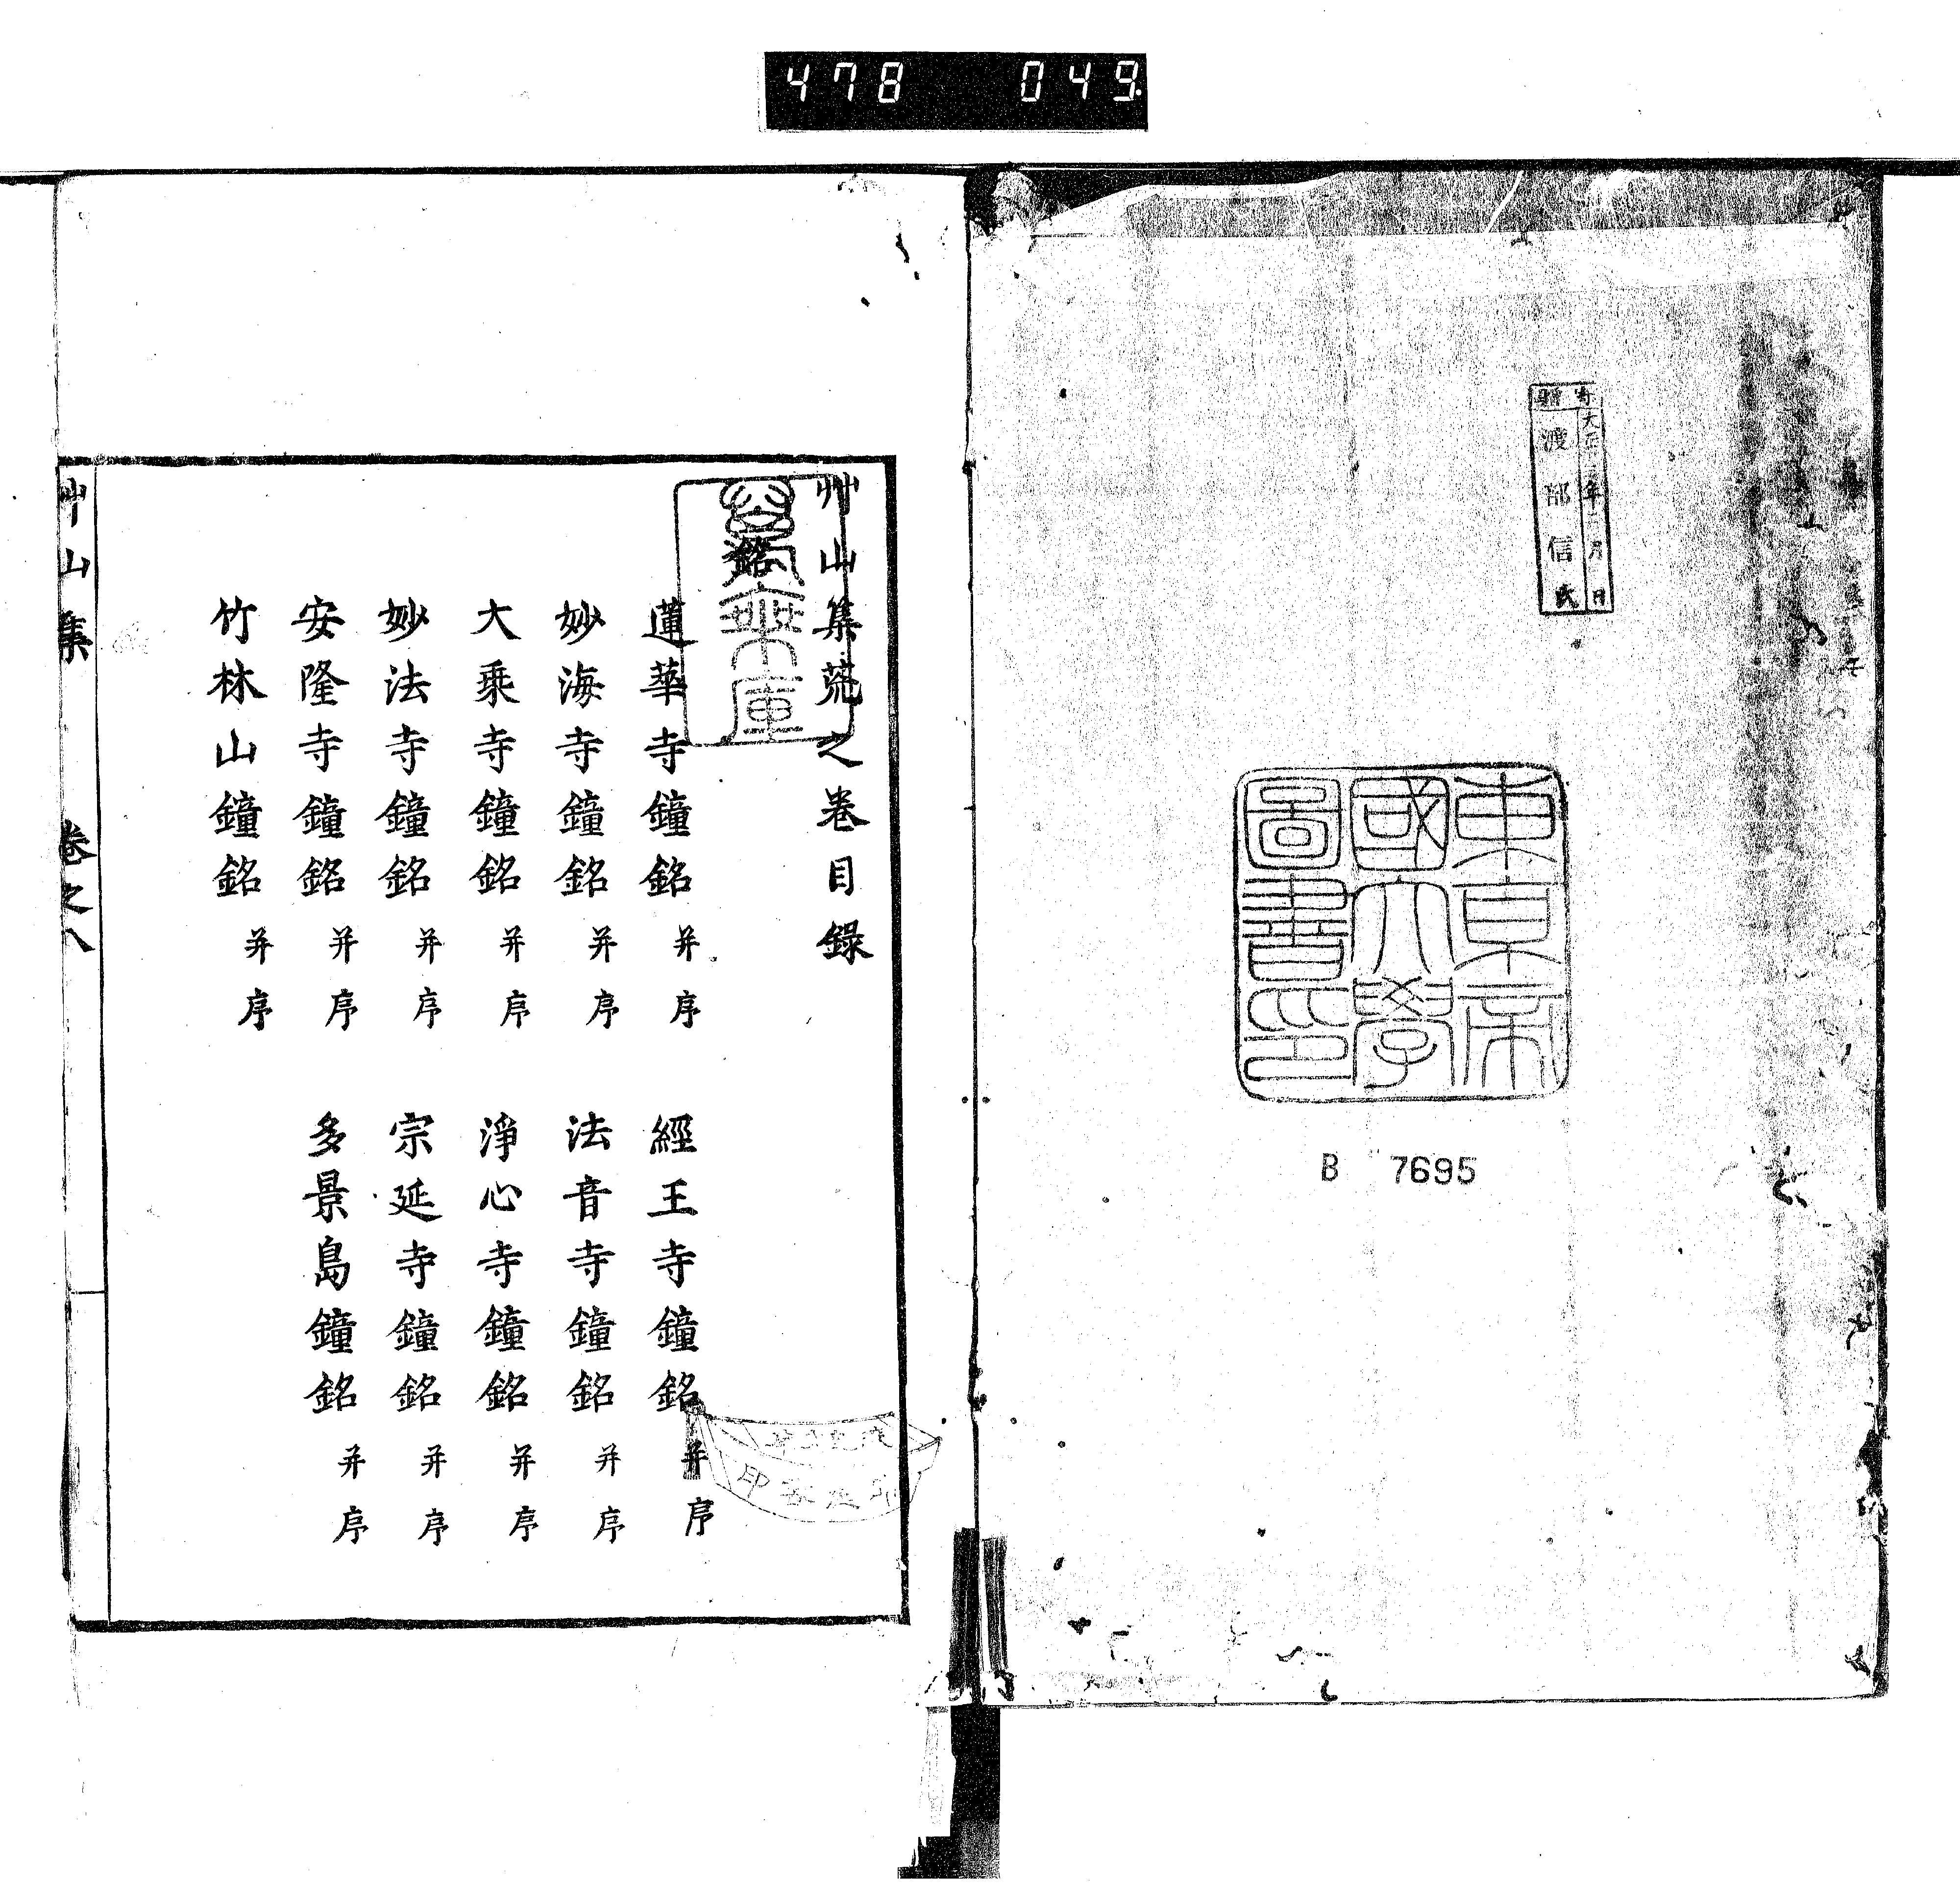 478 049
寄贈
大正 年 月 日
渡部信氏
東京帝
國大學
圖書印
B 7695
艸山集 之卷目錄
銘
蓮華寺鐘銘 并序 經王寺鐘銘 并序
妙海寺鐘銘 并序 法音寺鐘銘 并序
大乘寺鐘銘 并序 淨心寺鐘銘 并序
妙法寺鐘銘 并序 宗延寺鐘銘 并序
安隆寺鐘銘 并序 多景島鐘銘 并序
竹林山鐘銘 并序
艸山集 卷之八